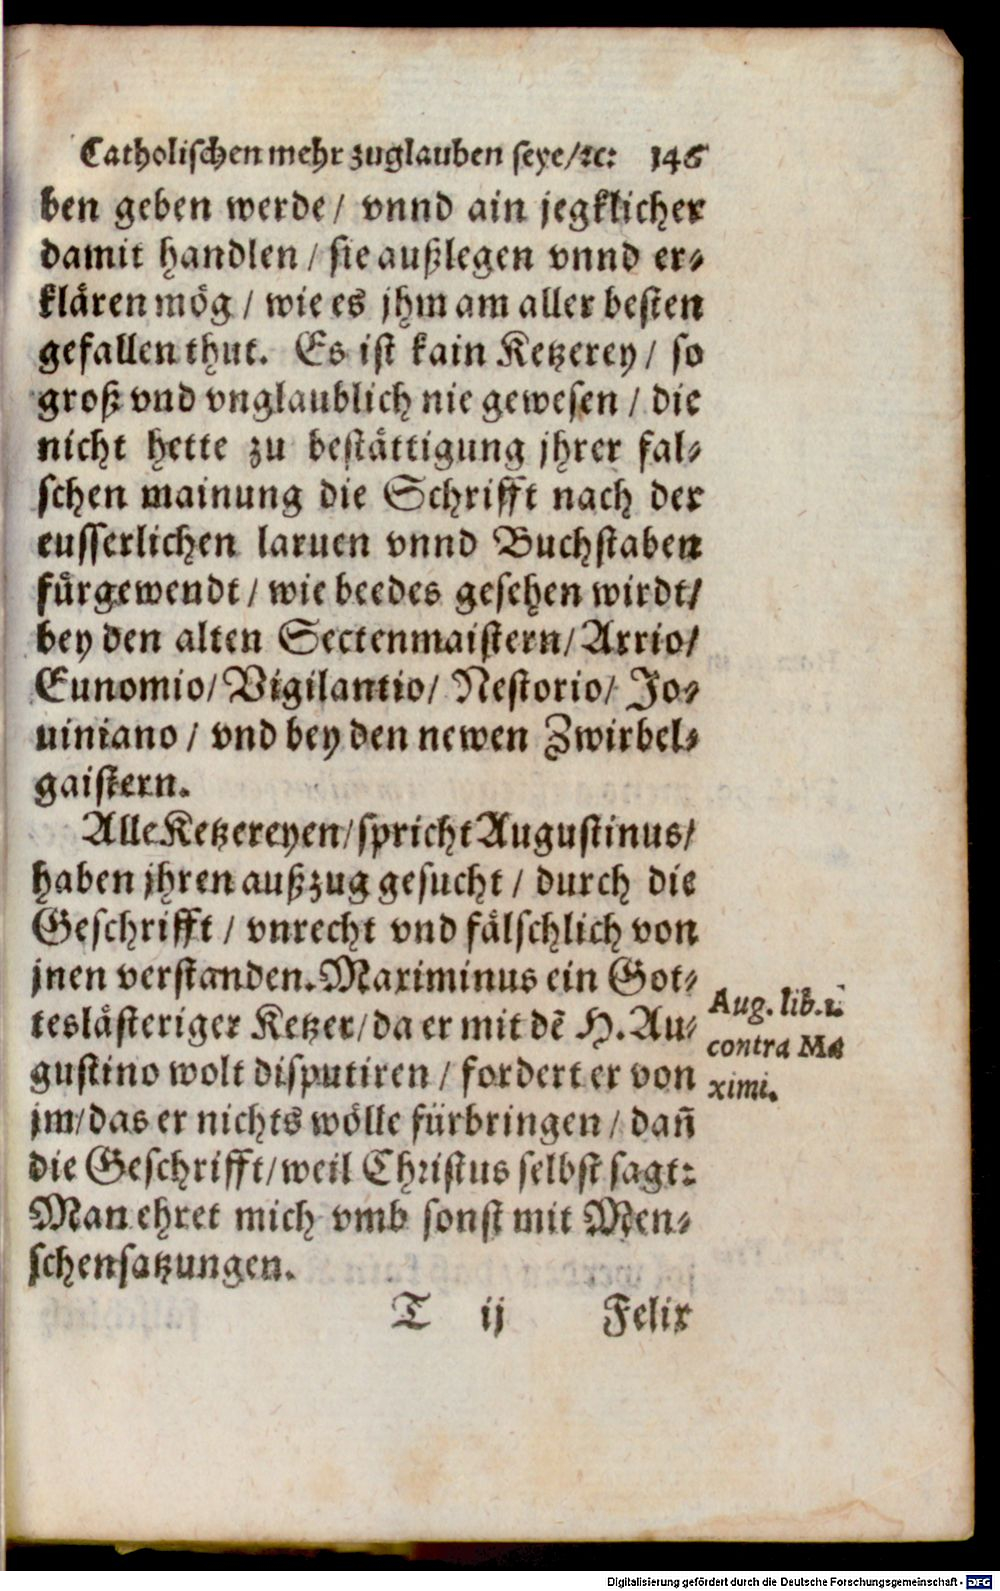 Catholischen mehr zuglauben seye/ꝛc: 146
ben geben werde/ vnnd ain jegklicher
damit handlen/ sie außlegen vnnd er⸗
klären mög/ wie es jhm am aller besten
gefallen thut. Es ist kain Ketzerey/ so
groß vnd vnglaublich nie gewesen/ die
nicht hette zu bestättigung jhrer fal⸗
schen mainung die Schrifft nach der
eusserlichen laruen vnnd Buchstaben
fürgewendt/ wie beedes gesehen wirdt/
bey den alten Sectenmaistern/ Arrio/
Eunomio/ Vigilantio/ Nestorio/ Jo⸗
uiniano/ vnd bey den newen Zwirbel⸗
gaistern.
Alle Ketzereyen/ spricht Augustinus/
haben jhren außzug gesucht/ durch die
Geschrifft/ vnrecht vnd fälschlich von
jnen verstanden. Maximinus ein Got⸗
teslästeriger Ketzer/ da er mit dē H. Au⸗
gustino wolt disputiren/ fordert er von
jm/ das er nichts wölle fürbringen/ dañ
die Geschrifft/ weil Christus selbst sagt:
Man ehret mich vmb sonst mit Men⸗
schensatzungen.
Aug. lib. 1.
contra Ma
ximi.
T ij Felix
Digitalisierung gefördert durch die Deutsche Forschungsgemeinschaft - DFG